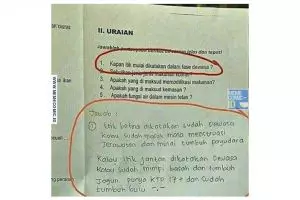 II. URAIAN
1. Kapan itik mulai dikatakan dalam fase dewasa ?
3. Apakah yang di maksud memodifikasi makanan?
4. Apakah yang di maksud kemasan ?
5. Apakah fungsi air dalam mesin tetas ?
Jawab :
① Itik betina dikatakan sudah dewasa
kalau sudah mulai menstruasi
Jerawatan dan mulai tumbuh payudara
Kalau itik jantan dikatakan dewasa
kalau sudah mimpi basah dan tumbuh
Jagun punya KTP 17+ dan sudah
tumbuh bulu